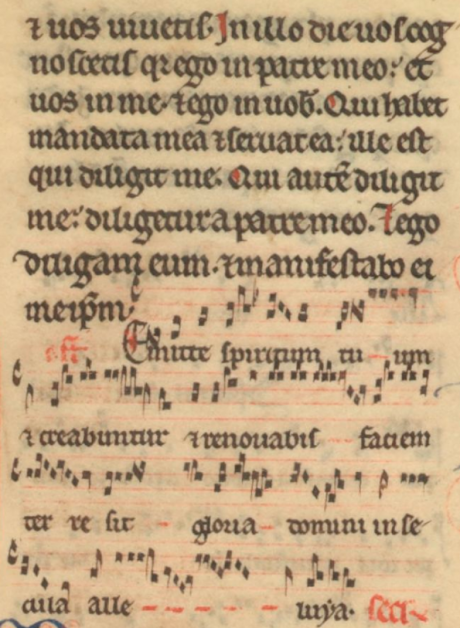 ⁊ uos uiuetis. In illo die uos cog
noscetis qr ego in patre meo: et
uos in me. ⁊ ego in uob. Qui habet
mandata mea ⁊ seruat ea: ille est
qui diligit me. Qui autē diligit
me: diligetur a patre meo. ⁊ ego
diligam eum. ⁊ manifestabo ei
meip̄m
off. Emitte spiritum tu um
⁊ creabuntur ⁊ renouabis faciem
ter re sit gloria domini in se
cula alle luiya. secr